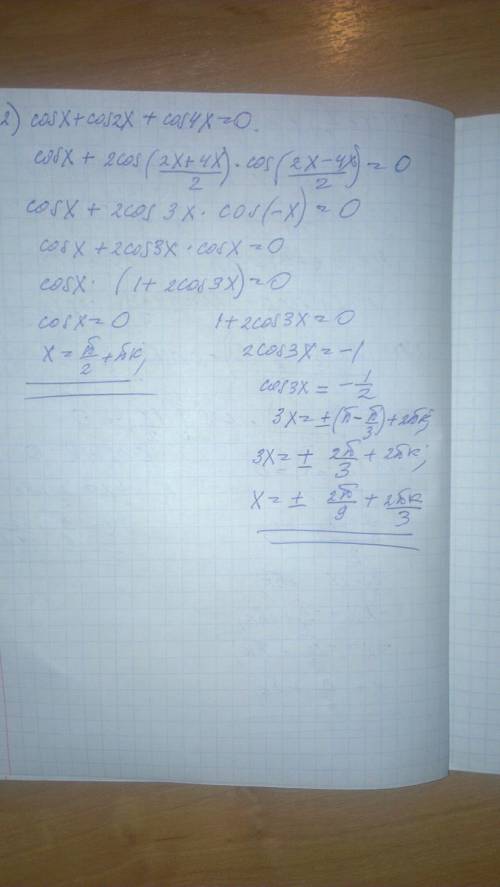 2) cosx+cos2x+cos4x=0.
cosx + 2cos(\frac{2x+4x}{2})·cos(\frac{2x-4x}{2})=0
cosx + 2cos3x·cos(-x)=0
cosx+2cos3x·cosx=0
cosx·(1+2cos3x)=0
cosx=0 1+2cos3x=0
x=\frac{π}{2}+πk; 2cos3x=-1
cos3x=-\frac{1}{2}
3x=±(π-\frac{π}{3})+2πk;
3x=± \frac{2π}{3}+2πk;
x=± \frac{2π}{9}+\frac{2πk}{3}